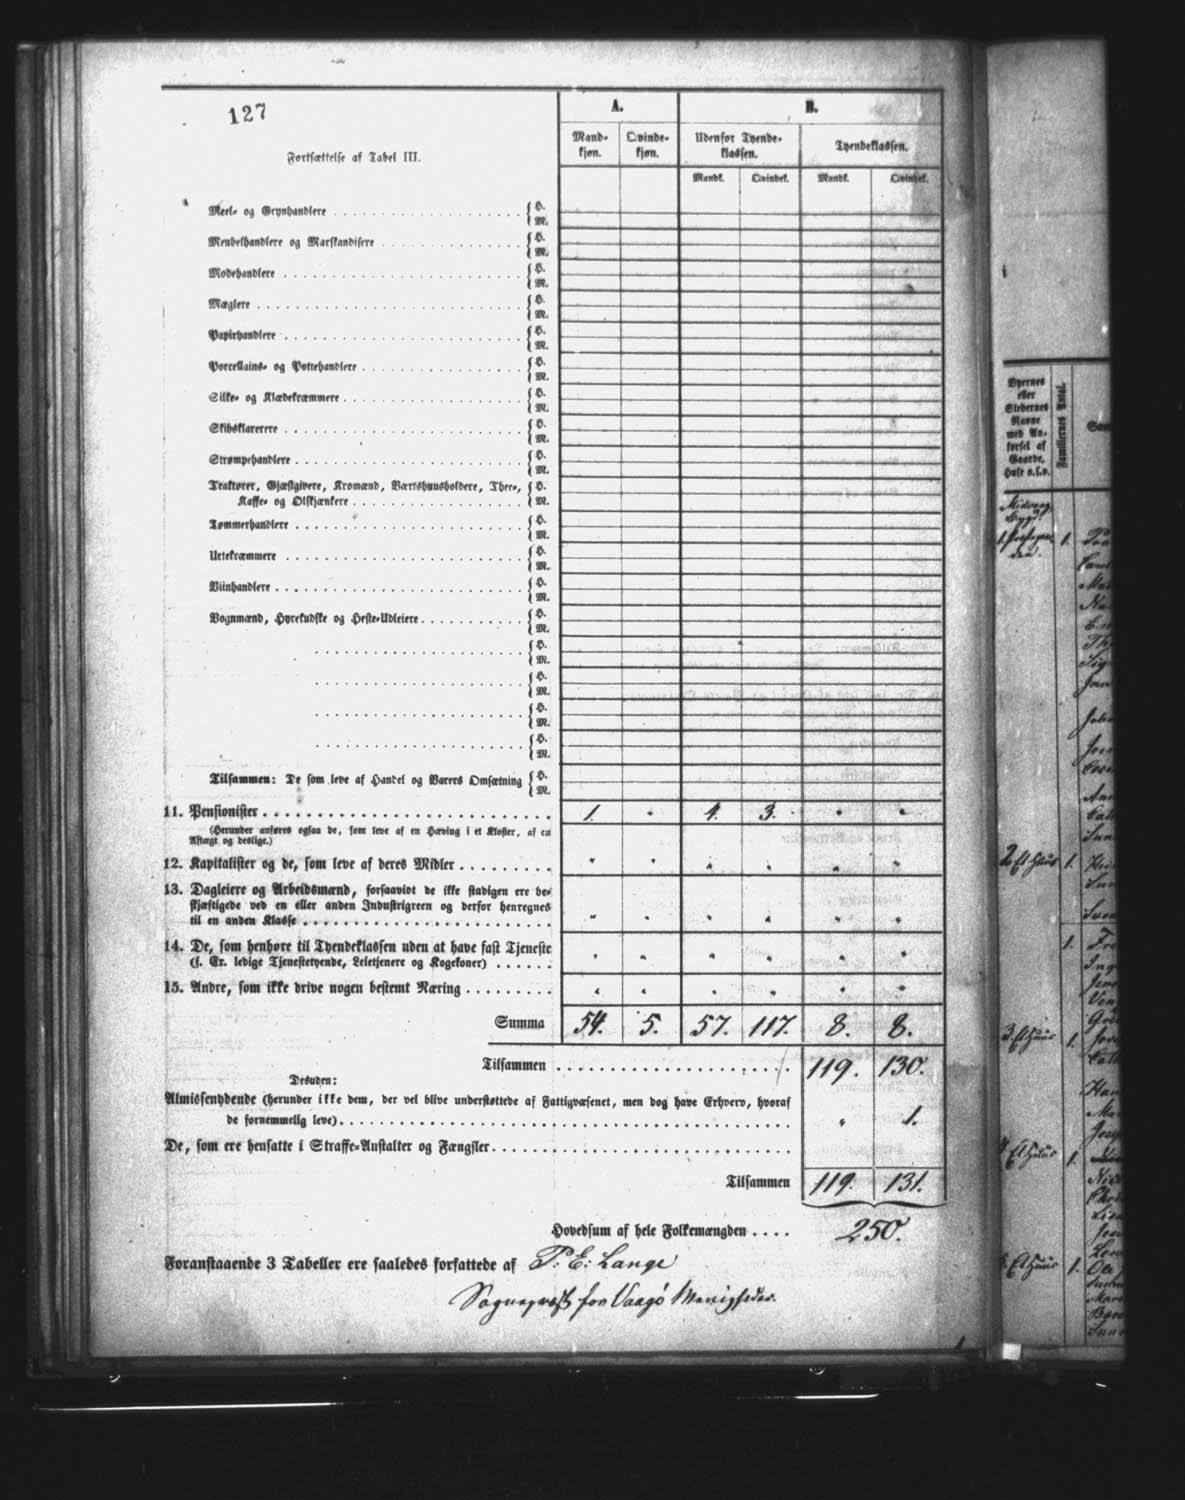 127
Fortsættelse af Tabel III.
A. B.
Mand-kjøn. Qvinde-kjøn. Udenfor Tyende-klassen. Tyendeklassen.
Mandk. Qvindek. Mandk. Qvindek.
Meel- og Grynhandlere { H. M.
Meubelhandlere og Marskandisere { H. M.
Modehandlere { H. M.
Mæglere { H. M.
Papirhandlere { H. M.
Porcellains- og Pottehandlere { H. M.
Silke- og Klædekræmmere { H. M.
Skibsklarerere { H. M.
Strømpehandlere { H. M.
Traktører, Gjæstgivere, Kromænd, Værtshuusholdere, Thee-,
Kaffe- og Ølskjænkere { H. M.
Tømmerhandlere { H. M.
Urtekræmmere { H. M.
Viinhandlere { H. M.
Vognmænd, Hyrekudske og Heste-Udleiere { H. M.
{ H. M.
{ H. M.
{ H. M.
{ H. M.
Tilsammen: De som leve af Handel og Varers Omsætning { H. M.
11. Pensionister 1. " 4. 3. " "
(Herunder anføres ogsaa de, som leve af en Hæving i et Kloster, af en
Aftægt og deslige.)
12. Kapitalister og de, som leve af deres Midler " " " " " "
13. Dagleiere og Arbeidsmænd, forsaavidt de ikke stadigen ere be-
skjæftigede ved en eller anden Industrigreen og derfor henregnes
til en anden Klasse " " " " " "
14. De, som henhøre til Tyendeklassen uden at have fast Tjeneste
(f. Ex. ledige Tjenestetyende, Leietjenere og Kogekoner) " " " " " "
15. Andre, som ikke drive nogen bestemt Næring " " " " " "
Summa 54. 5. 57. 117. 8. 8.
Tilsammen 119. 130.
Desuden:
Almissenydende (herunder ikke dem, der vel blive understøttede af Fattigvæsenet, men dog have Erhverv, hvoraf
de fornemmelig leve) " 1.
De, som ere hensatte i Straffe-Anstalter og Fængsler
Tilsammen 119. 131.
Hovedsum af hele Folkemængden 250.
Foranstaaende 3 Tabeller ere saaledes forfattede af P. E. Lange
Sognepræst for Vaagø Menigheder.
Byernes
eller
Stedernes
Navne
med An-
førsel af
Gaarde,
Huse o.s.v.
Familiernes Antal.
Midvaag
Bygd.
1. 1.
2. Et Huus 1.
1.
3. Et Huus 1.
4. Et Huus 1.
5. Et Huus 1.